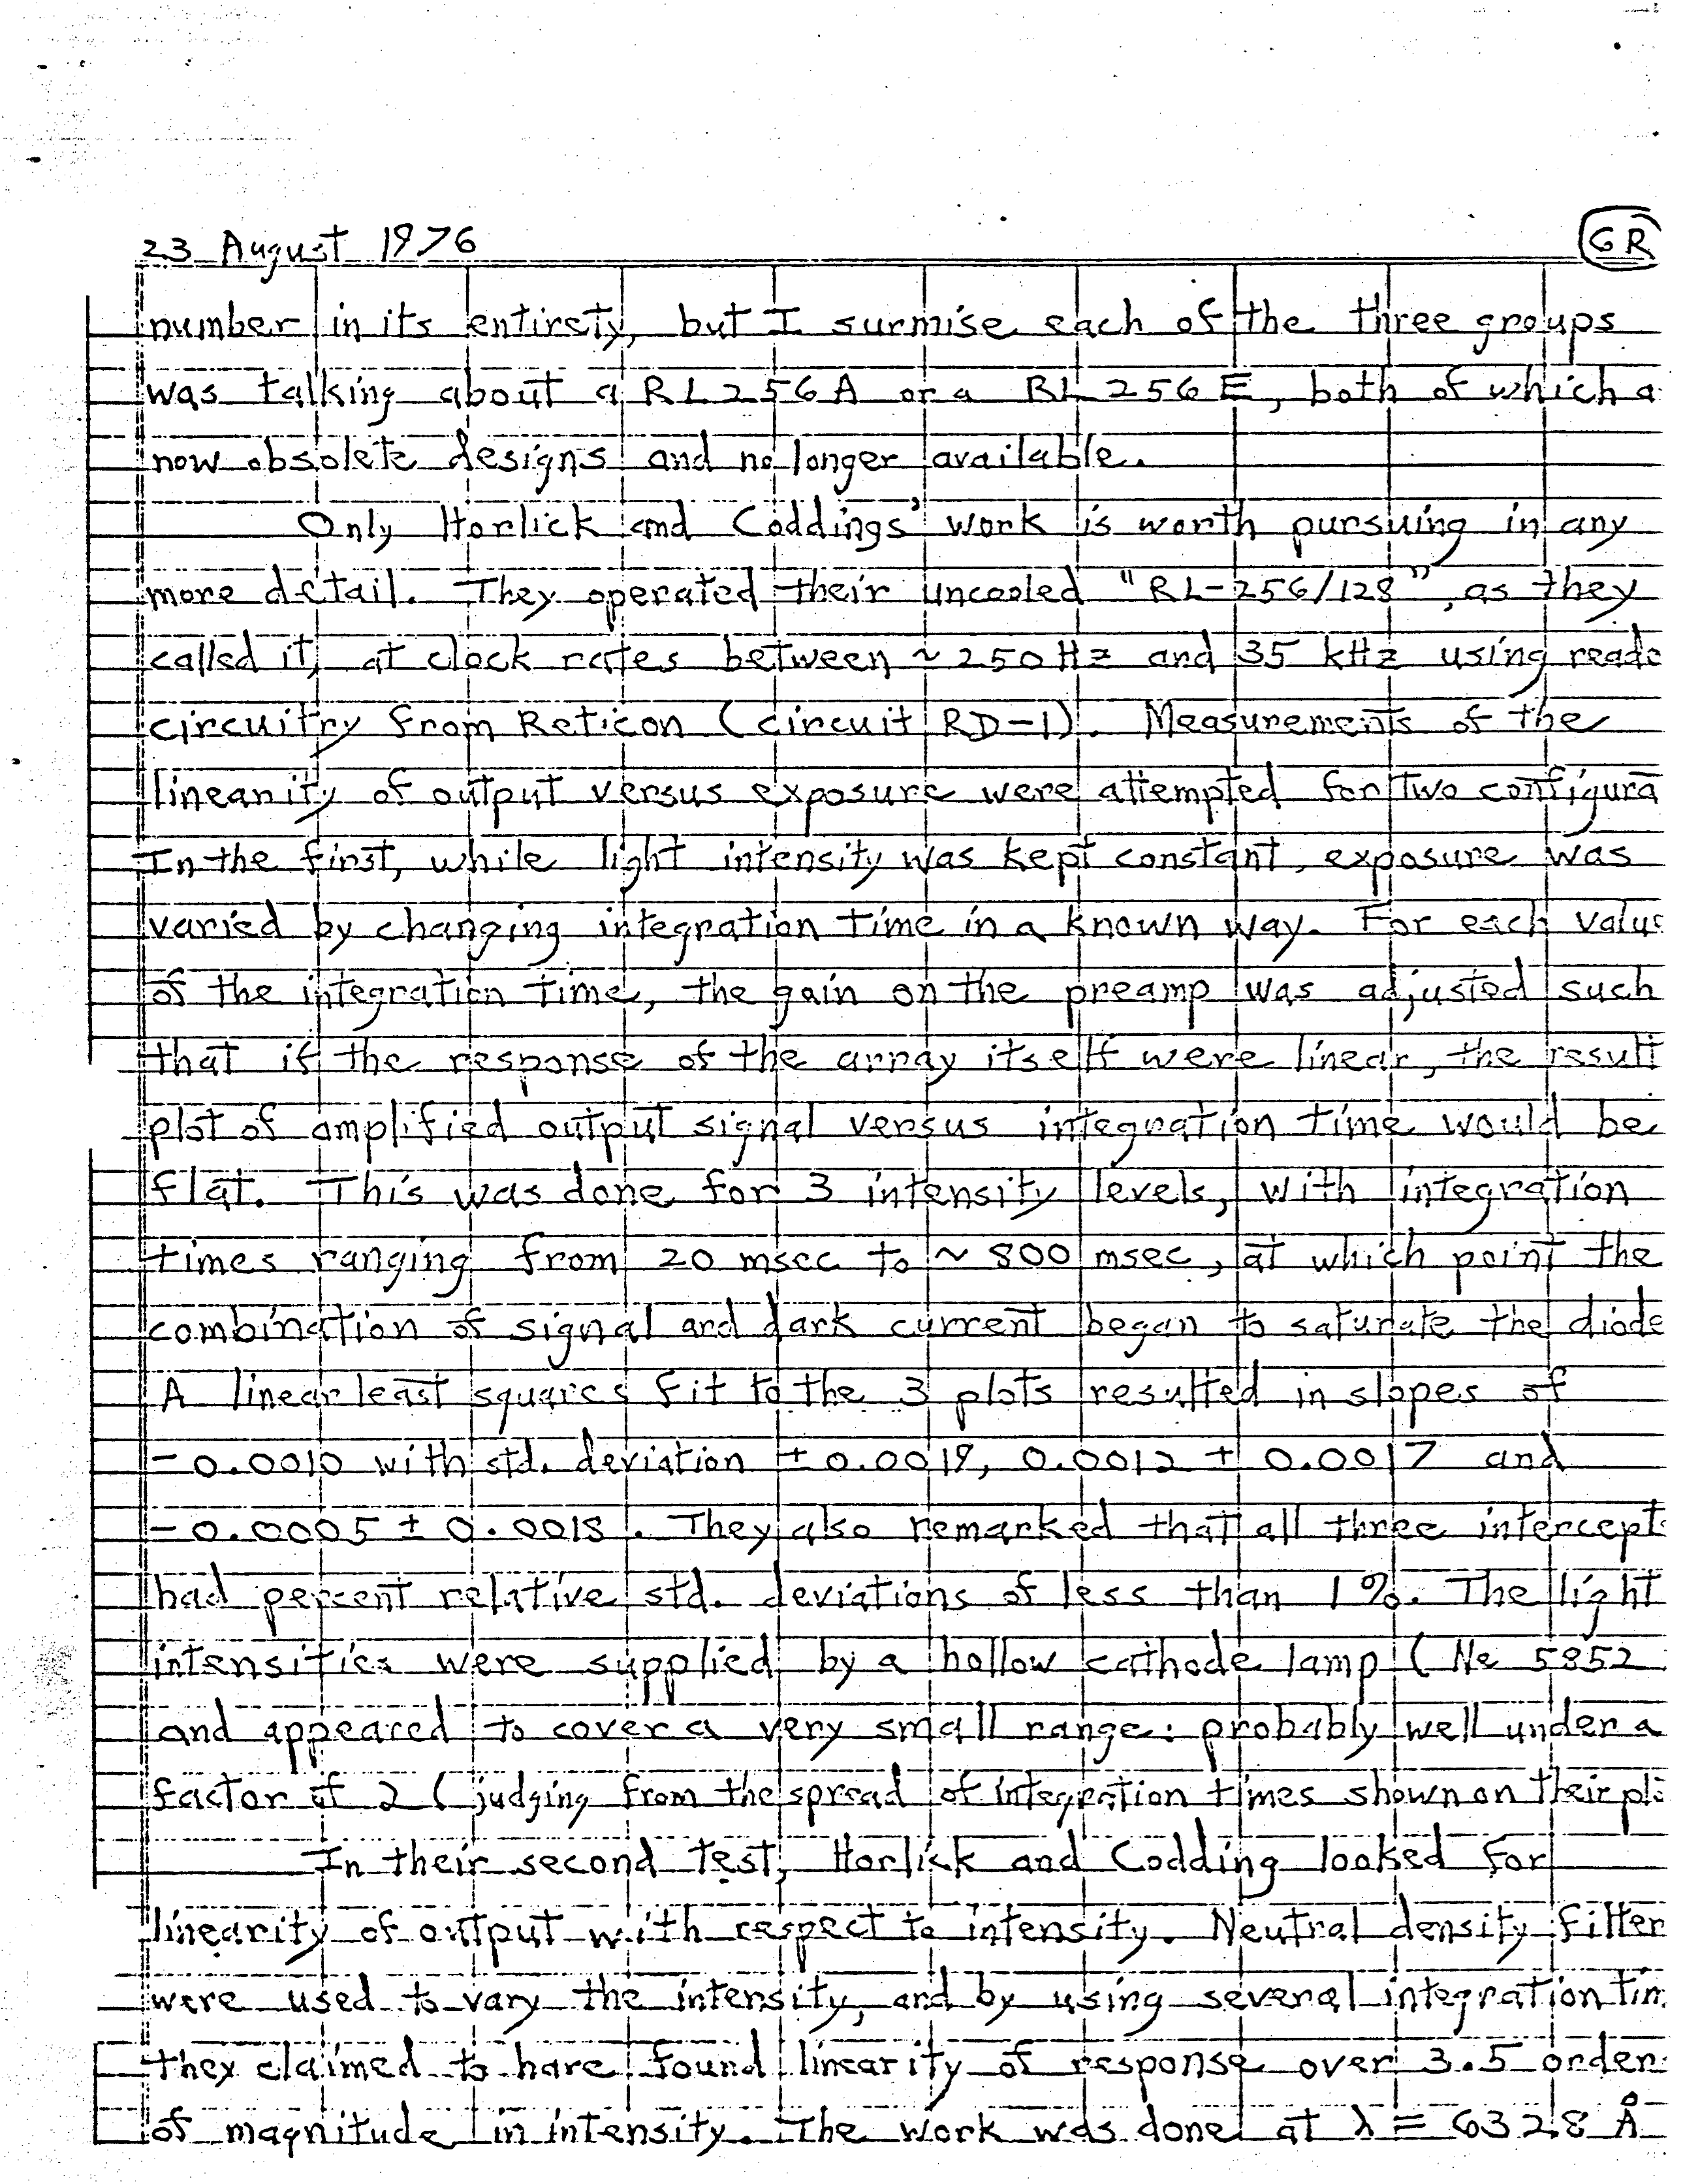 23 August 1976
GR
number in its entirety, but I surmise each of the three groups
was talking about a RL256A or a RL256E, both of which a
now obsolete designs and no longer available.
Only Horlick and Coddings' work is worth pursuing in any
more detail. They operated their uncooled "RL-256/128", as they
called it, at clock rates between ~250Hz and 35 kHz using reado
circuitry from Reticon (circuit RD-1). Measurements of the
linearity of output versus exposure were attempted for two configura
In the first, while light intensity was kept constant, exposure was
varied by changing integration time in a known way. For each value
of the integration time, the gain on the preamp was adjusted such
that if the response of the array itself were linear, the result
plot of amplified output signal versus integration time would be
flat. This was done for 3 intensity levels, with integration
times ranging from 20 msec to ~800 msec, at which point the
combination of signal and dark current began to saturate the diode
A linear least squares fit to the 3 plots resulted in slopes of
-0.0010 with std. deviation ±0.0019, 0.0012 ± 0.0017 and
-0.0005 ± 0.0018. They also remarked that all three intercept
had percent relative std. deviations of less than 1%. The light
intensities were supplied by a hollow cathode lamp (Ne 5852
and appeared to cover a very small range: probably well under a
factor of 2 (judging from the spread of integration times shown on their pl
In their second test, Horlick and Codding looked for
linearity of output with respect to intensity. Neutral density filter
were used to vary the intensity, and by using several integration tim
they claimed to have found linearity of response over 3.5 order
of magnitude in intensity. The work was done at λ = 6328 Å